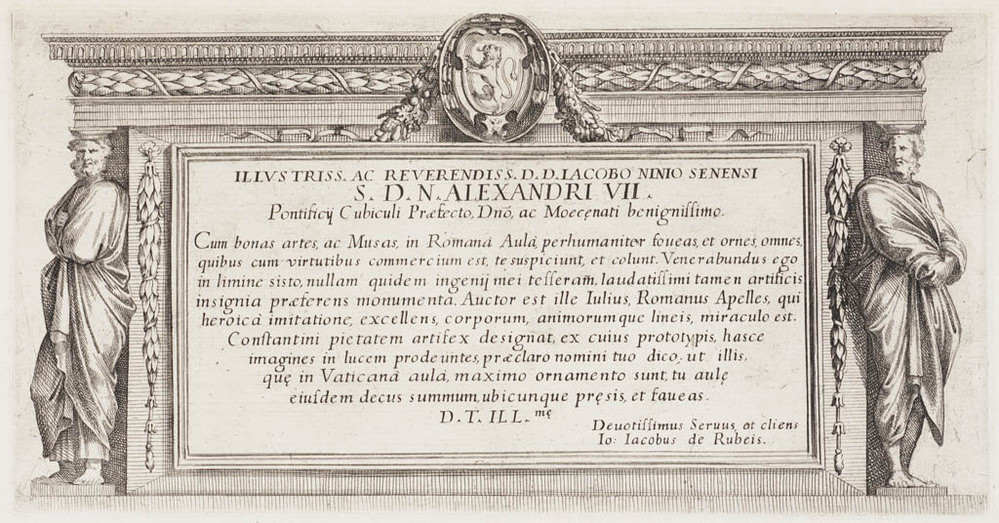 ILLVSTRISS. AC REVERENDISS. D. D. IACOBO NINIO SENENSI
S. D. N. ALEXANDRI VII.
Pontificij Cubiculi Præfecto, Dnō, ac Moecęnati benignissimo.
Cum bonas artes, ac Musas, in Romanà Aulà, perhumaniter foueas, et ornes, omnes,
quibus cum virtutibus commercium est, te suspiciunt, et colunt. Venerabundus ego
in limine sisto, nullam quidem ingenij mei tesseram, laudatissimi tamen artificis
insignia præferens monumenta. Auctor est ille Iulius, Romanus Apelles, qui
heroicà imitatione, excellens, corporum, animorumque lineis, miraculo est.
Constantini pietatem artifex designat, ex cuius prototypis, hasce
imagines in lucem prodeuntes, præclaro nomini tuo dico, ut illis,
quę in Vaticanà aulà, maximo ornamento sunt, tu aulę
eiusdem decus summum, ubicunque pręsis, et faueas.
D. T. ILL.mę
Deuotissimus Seruus, et cliens
Io: Iacobus de Rubeis.